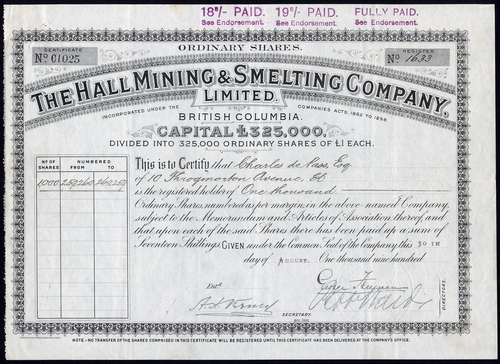 18s/- PAID. 19s/- PAID. FULLY PAID.
See Endorsement. See Endorsement. See Endorsement.
ORDINARY SHARES.
CERTIFICATE
No C1025
REGISTER
No 1633
THE HALL MINING & SMELTING COMPANY,
LIMITED.
INCORPORATED UNDER THE COMPANIES, ACTS, 1862 TO 1898.
BRITISH COLUMBIA.
CAPITAL £325,000,
DIVIDED INTO 325,000 ORDINARY SHARES OF £1 EACH.
No OF SHARES NUMBERED FROM TO
1000
This is to Certify that Charles de Pass, Esq
of 10 Throgmorton Avenue, EC
is the registered holder of One thousand
Ordinary Shares, numbered as per margin, in the above named Company,
subject to the Memorandum and Articles of Association thereof, and
that upon each of the said Shares there has been paid up a sum of
Seventeen Shillings. GIVEN under the Common Seal of the Company this 30TH
day of AUGUST. One thousand nine hundred
Entd
SECRETARY.
DIRECTORS.
NOTE.-NO TRANSFER OF THE SHARES COMPRISED IN THIS CERTIFICATE WILL BE REGISTERED UNTIL THIS CERTIFICATE HAS BEEN DELIVERED AT THE COMPANY'S OFFICE.